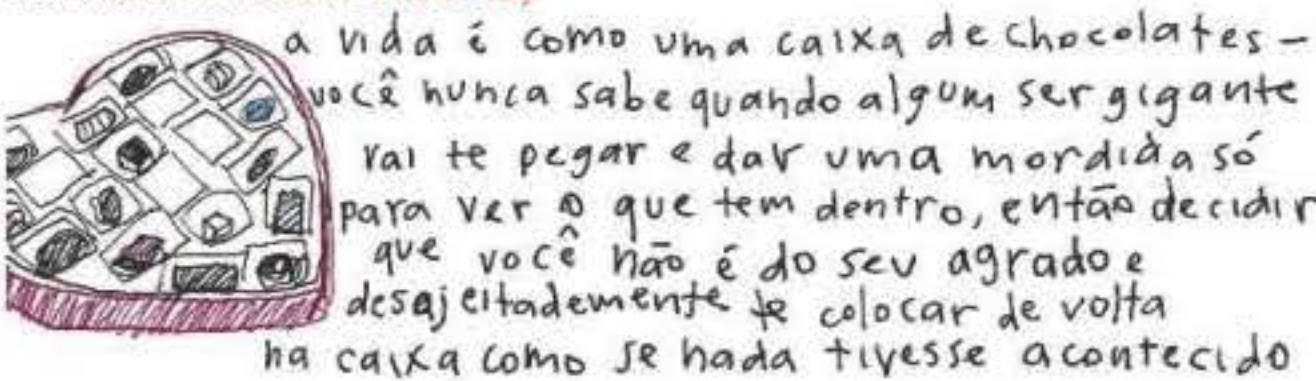 a vida é como uma caixa de chocolates –
você nunca sabe quando algum ser gigante
vai te pegar e dar uma mordida só
para ver o que tem dentro, então decidir
que você não é do seu agrado e
desajeitademente te colocar de volta
na caixa como se nada tivesse acontecido